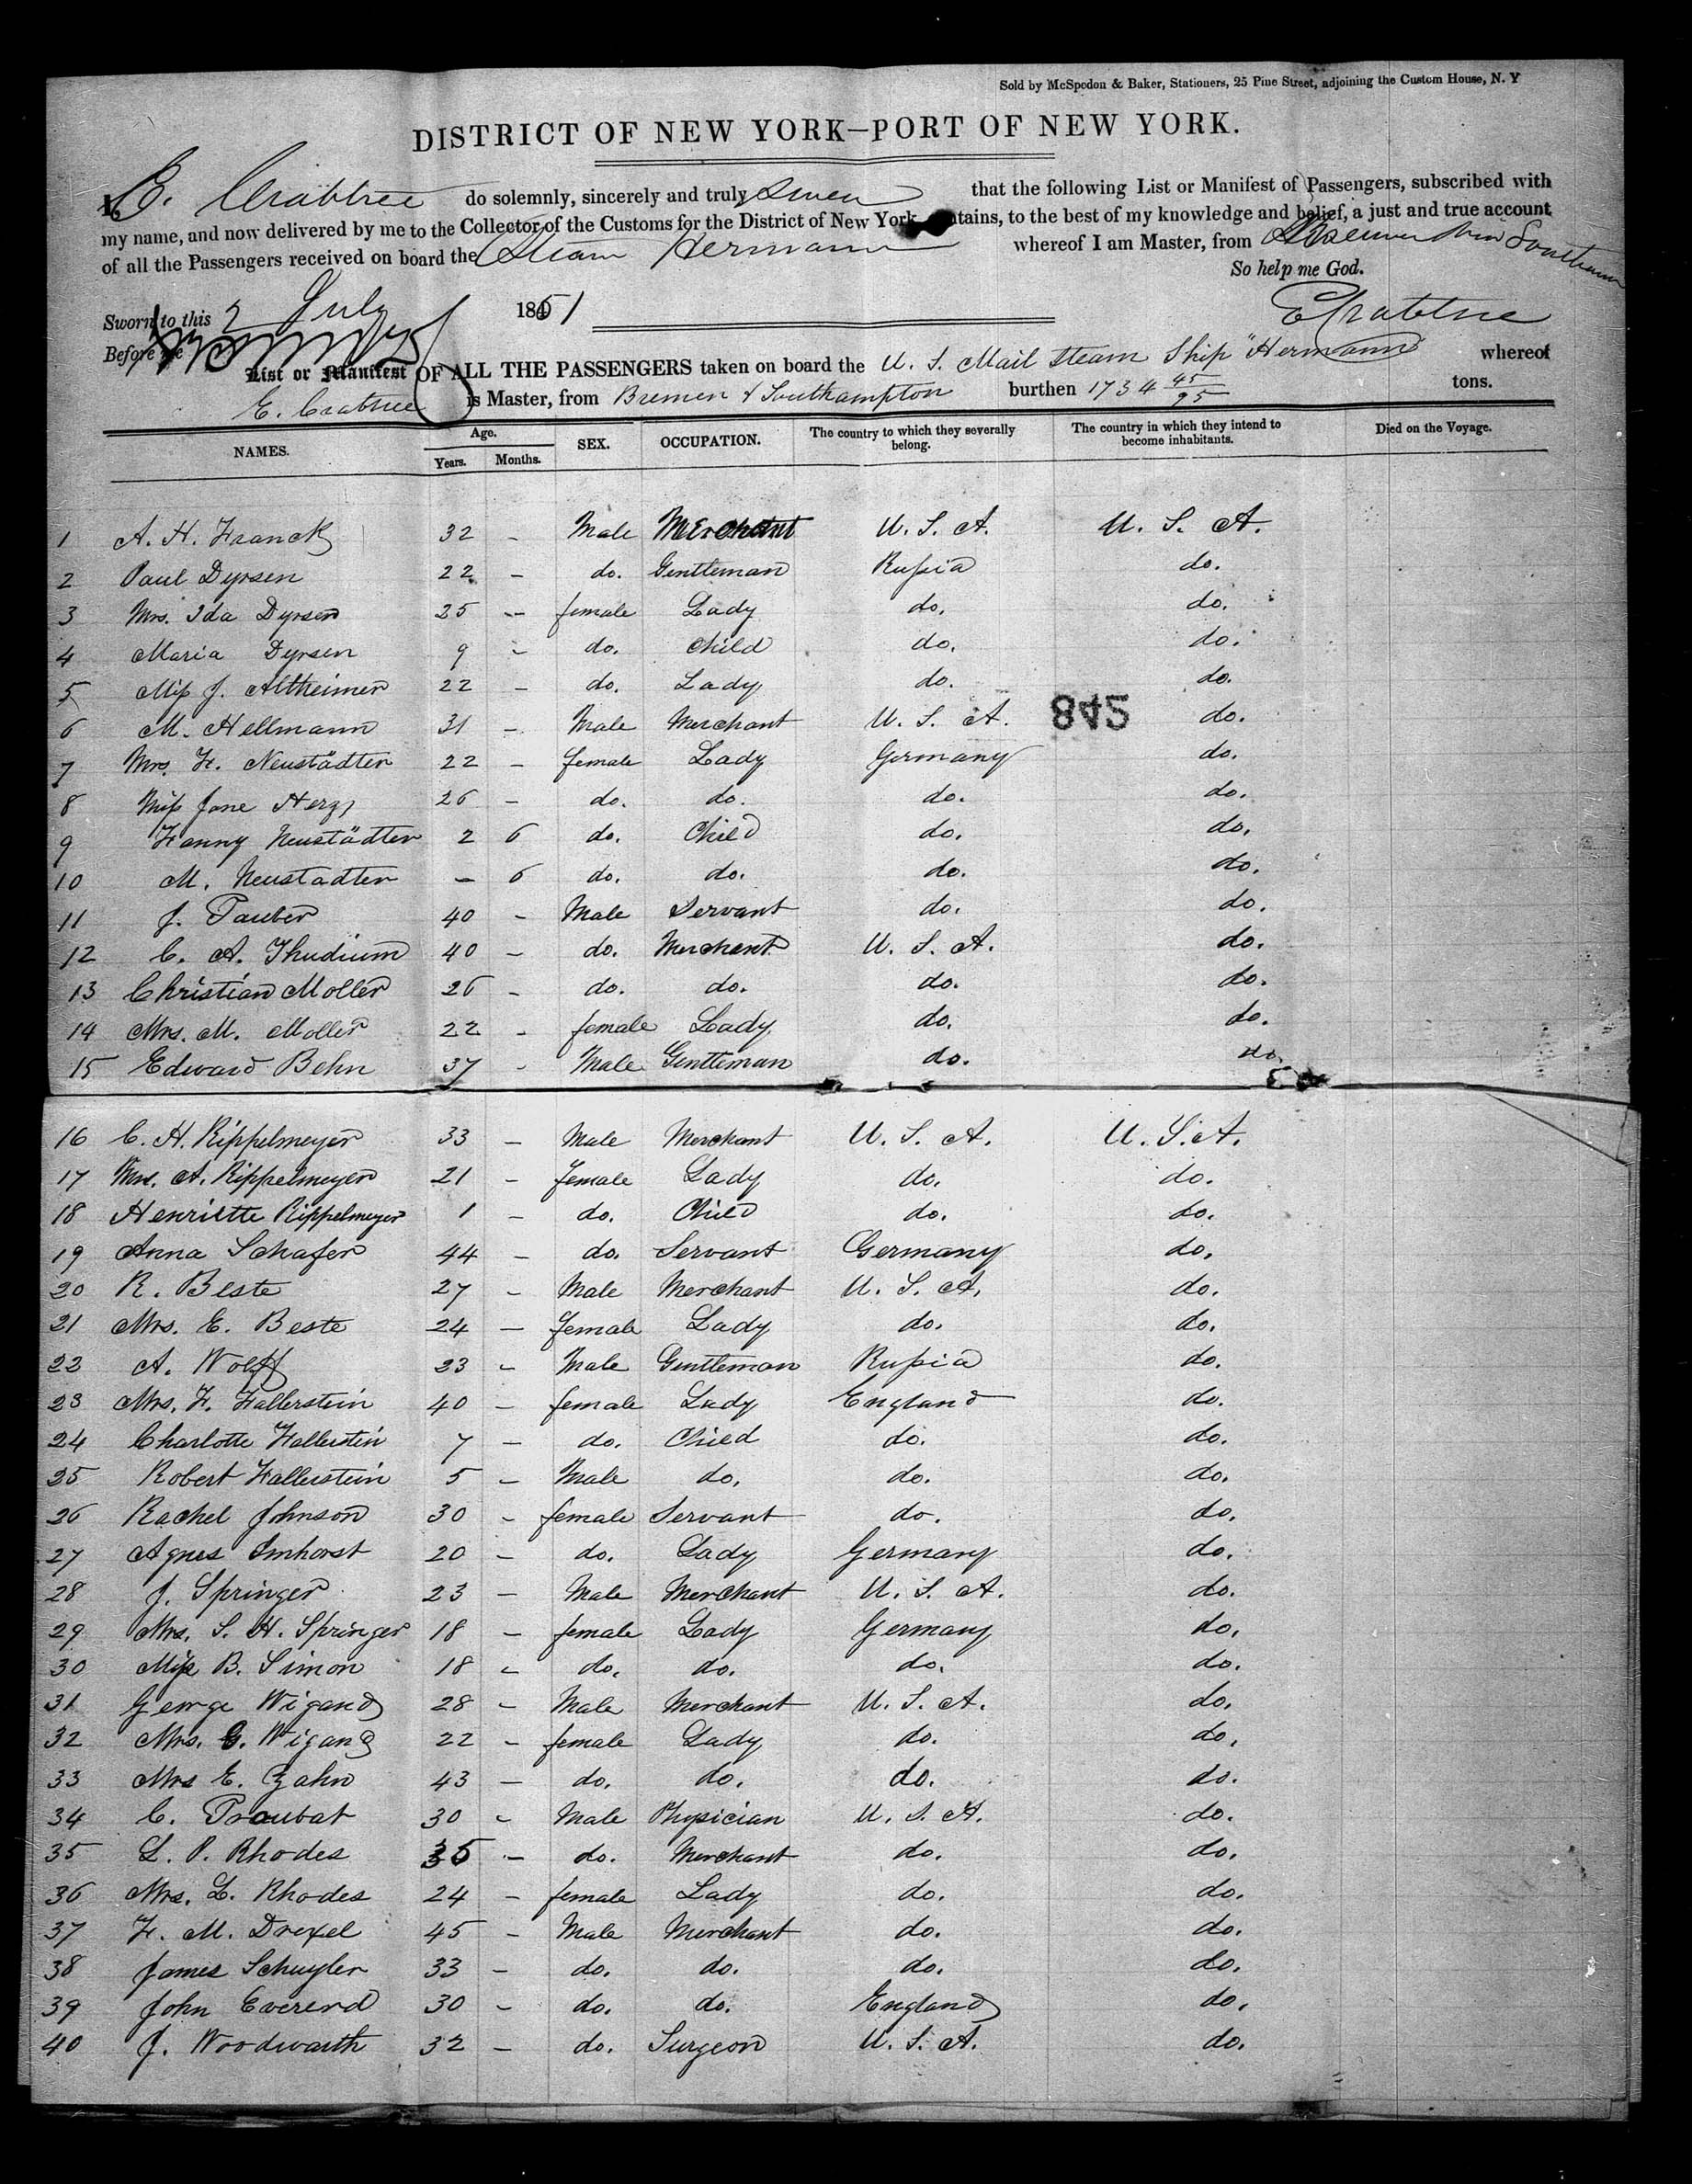 Sold by McSpedon & Baker, Stationers, 25 Pine Street, adjoining the Custom House, N. Y
DISTRICT OF NEW YORK—PORT OF NEW YORK.
I, E. Crabtree do solemnly, sincerely and truly swear that the following List or Manifest of Passengers, subscribed with
my name, and now delivered by me to the Collector of the Customs for the District of New York tains, to the best of my knowledge and belief, a just and true account
of all the Passengers received on board the Steam Hermann whereof I am Master, from Bremen
So help me God.
Sworn to this 2 July 1851
ECrabtree
Before me
List or Manifest OF ALL THE PASSENGERS taken on board the U. S. Mail Steam Ship "Hermann" whereof
E. Crabtree is Master, from Bremen & Southampton burthen 1734 45/95 tons.
NAMES. Age. Years. Months. SEX. OCCUPATION. The country to which they severally belong. The country in which they intend to become inhabitants. Died on the Voyage.
1 A. H. Franck 32 - Male Merchant U. S. A. U. S. A.
2 Paul Dyrsen 22 - do. Gentleman Rußia do.
3 Mrs. Ida Dyrsen 25 - female Lady do. do.
4 Maria Dyrsen 9 - do. Child do. do.
5 Miß J. Altheimer 22 - do. Lady do. do.
842
6 M. Hellmann 31 - Male Merchant U. S. A. do.
7 Mrs. F. Neustädter 22 - female Lady Germany do.
8 Miß Jane Herz 26 - do. do. do. do.
9 Fanny Neustädter 2 6 do. Child do. do.
10 M. Neustadter - 6 do. do. do. do.
11 J. Tauber 40 - Male Servant do. do.
12 C. A. Thudium 40 - do. Merchant U. S. A. do.
13 Christian Moller 26 - do. do. do. do.
14 Mrs. M. Moller 22 - female Lady do. do.
15 Edward Behn 37 - Male Gentleman do. do.
16 C. H. Rippelmeyer 33 - Male Merchant U. S. A. U. S. A.
17 Mrs. A. Rippelmeyer 21 - female Lady do. do.
18 Henriette Rippelmeyer 1 - do. Child do. do.
19 Anna Schafer 44 - do. Servant Germany do.
20 R. Beste 27 - Male Merchant U. S. A. do.
21 Mrs. E. Beste 24 - female Lady do. do.
22 A. Wolff 23 - Male Gentleman Rußia do.
23 Mrs. F. Fallerstein 40 - female Lady England do.
24 Charlotte Fallerstein 7 - do. Child do. do.
25 Robert Fallerstein 5 - Male do. do. do.
26 Rachel Johnson 30 - female Servant do. do.
27 Agnes Imhorst 20 - do. Lady Germany do.
28 J. Springer 23 - Male Merchant U. S. A. do.
29 Mrs. S. H. Springer 18 - female Lady Germany do.
30 Miß B. Simon 18 - do. do. do. do.
31 George Wigand 28 - Male Merchant U. S. A. do.
32 Mrs. G. Wigand 22 - female Lady do. do.
33 Mrs E. Zahn 43 - do. do. do. do.
34 C. Troubat 30 - Male Physician U. S. A. do.
35 L. P. Rhodes 35 - do. Merchant do. do.
36 Mrs. L. Rhodes 24 - female Lady do. do.
37 F. M. Drexel 45 - Male Merchant do. do.
38 James Schuyler 33 - do. do. do. do.
39 John Evererd 30 - do. do. England do.
40 J. Woodwarth 32 - do. Surgeon U. S. A. do.